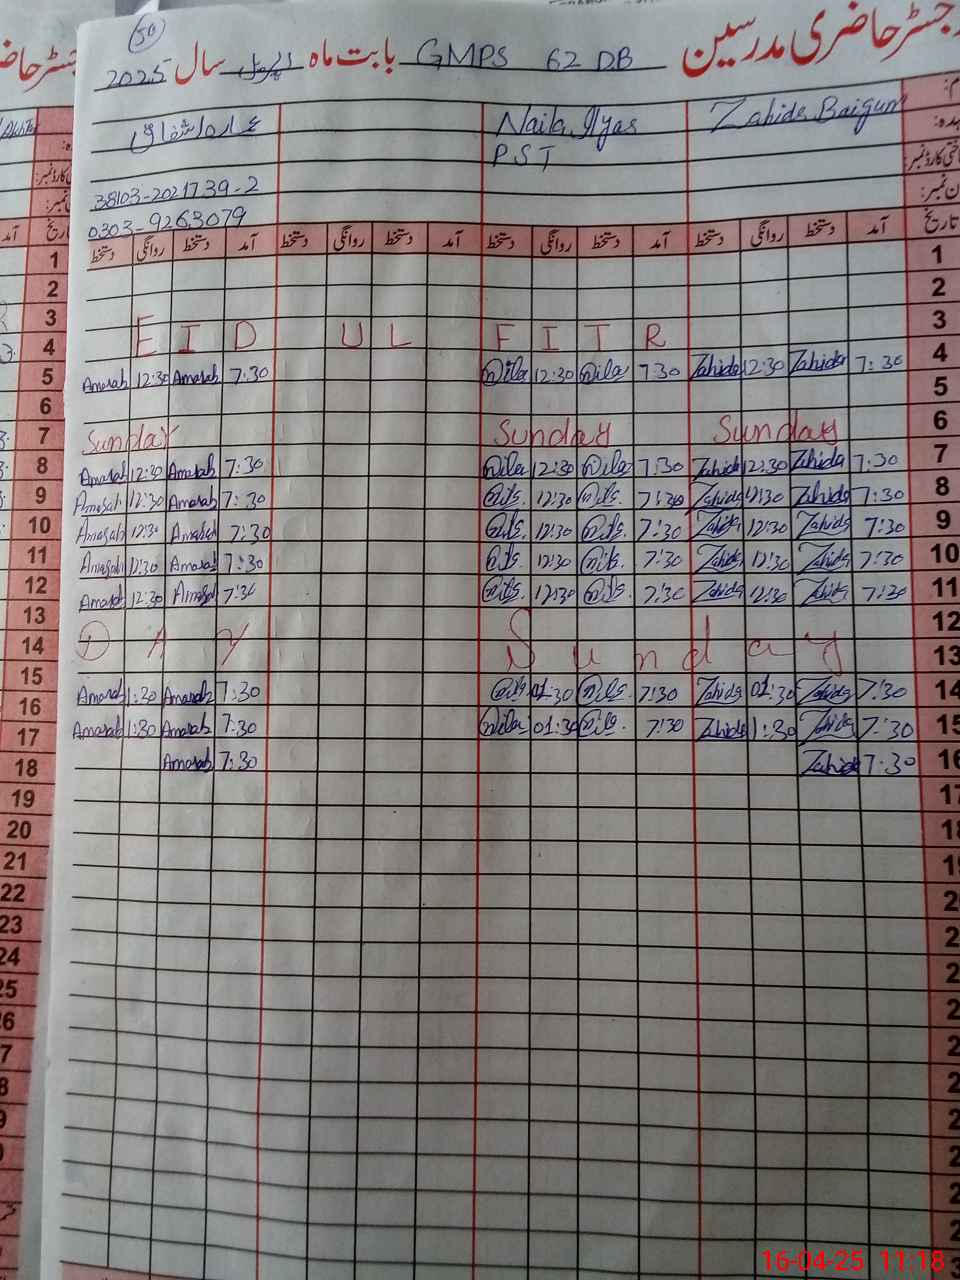 50
رجسٹر حاضری مدرسین GMPS 62 DB بابت ماہ اپریل سال 2025
Zahida Baigum Naila Ilyas عمارہ اشفاق
PST
38103-2021739-2
0303-9263079
تاریخ آمد دستخط روانگی دستخط آمد دستخط روانگی دستخط آمد دستخط روانگی دستخط آمد دستخط روانگی دستخط
1 1
2 2
3 3
EID UL FITR
4 4
5 Amarah 12:30 Amarah 7:30 Naila 12:30 Naila 7:30 Zahida 12:30 Zahida 7:30 5
6 6
7 Sunday Sunday Sunday
8 Amarah 12:30 Amarah 7:30 Naila 12:30 Naila 7:30 Zahida 12:30 Zahida 7:30 7
9 Amarah 12:30 Amarah 7:30 12:30 7:30 Zahida 12:30 Zahida 7:30 8
10 Amarah 12:30 Amarah 7:30 12:30 7:30 Zahida 12:30 Zahida 7:30 9
11 Amarah 12:30 Amarah 7:30 12:30 7:30 Zahida 12:30 Zahida 7:30 10
12 Amarah 12:30 Amarah 7:30 12:30 7:30 Zahida 12:30 Zahida 7:30 11
13 12
14 DAY Sunday 13
15 Amarah 1:30 Amarah 7:30 01:30 7:30 Zahida 01:30 Zahida 7:30 14
16
17 Amarah 1:30 Amarah 7:30 Naila 01:30 7:30 Zahida 1:30 Zahida 7:30 15
18 Amarah 7:30 Zahida 7:30 16
19 17
20 18
21
22
23
24
25
16-04-25 11:18